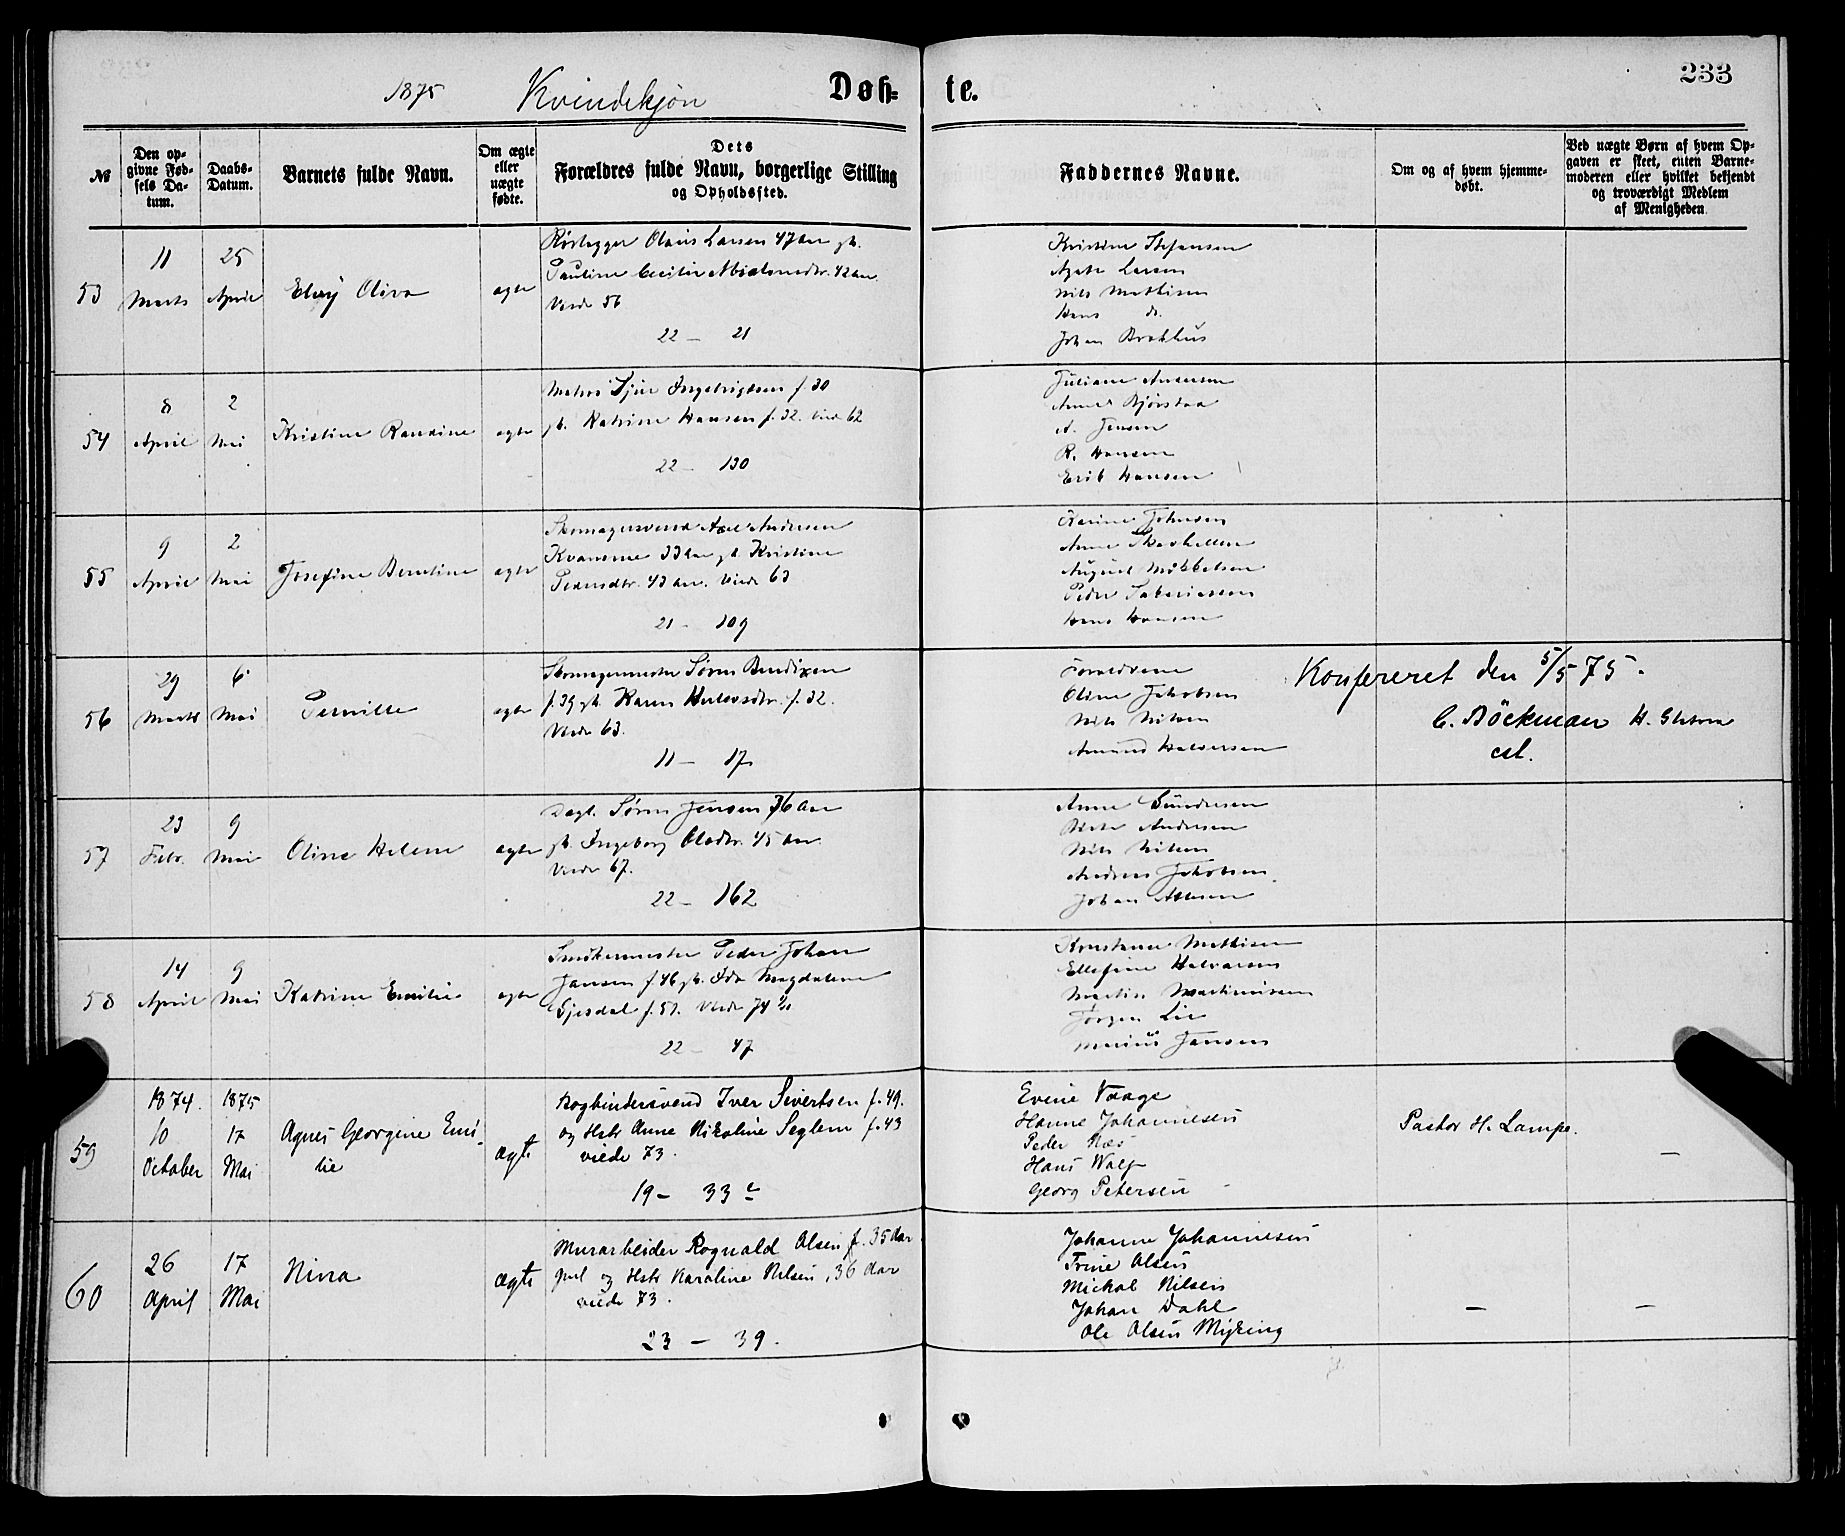 233
1875 Kvindekjøn Døb- te.
№
Den op-
givne Fød-
sels Da-
tum.
Daabs-
Datum.
Barnets fulde Navn.
Om ægte
eller
uægte
fødte.
Dets
Forældres fulde Navn, borgerlige Stilling
og Opholdssted.
Faddernes Navne.
Om og af hvem hjemme-
døbt.
Ved uægte Børn af hvem Op-
gaven er skeet, enten Barne-
moderen eller hvilket bekjendt
og troværdigt Medlem
af Menigheden.
53
11
Marts
25
April
Oliva
ægte
Olaus Larsen 47 Aar gb.
Pauline Cecilie 42 Aar
Viede 56
22 – 21
Kristine Stefansen
Agate Larsen
Nils Mathisen
Hans do.
Johan
54
8
April
2
Mai
Kristine
ægte
f. 30
gb. Katrine Hansen f. 32. Viede 62
22 – 130
Juliane
Anne
A. Jensen
R. Hansen
Erik Hansen
55
9
April
2
Mai
Josefine Berntine
ægte
Skomagersvend Andersen
33 Aar gb. Kristine
Pedersdtr. 43 Aar. Viede 63
21 – 109
Johnsen
Anne
August Mikkelsen
Peder
Hans Hansen
56
29
Marts
6
Mai
Pernille
ægte
Skomagermester Søren Bendixen
f. 39 gb. Karen f. 32.
Viede 63.
11 – 17
Forældrene
Oline Jakobsen
Nils Nilsen
Amund Halvorsen
Konfereret den 5/5 75.
C. Böckman H.
cst.
57
23
Febr.
9
Mai
Oline Helene
ægte
Dagl. Søren Jensen 36 Aar
gb. Ingeborg Olsdtr. 45 Aar
Viede 67.
22 – 162
Anne Gundersen
Andersen
Nils Nilsen
Andreas Jakobsen.
Johan
58
14
April
9
Mai
Katrine Emilie
ægte
Snedkermester Peder Johan
Jansen f. 46 gb. Ida Magdalene
Gjesdal f. 51. Viede 74
22 – 47
Konstanse Mathisen
Ellefine Halvorsen
Martin Martinisen
Jørgen Lie
Marius Jansen
59
1874.
10
October
1875
17
Mai
Agnes Georgine Emi-
lie
ægte
Bogbindersvend Iver Sivertsen f. 49.
og Hstr Anne Nikoline Seglem f. 43
viede 73.
19 – 33
Evine Vaage
Hanne Johannesen
Peder Næs
Hans Wolf
Georg Petersen
Pastor H. Lampe.
–
60
26
April
17
Mai
Nina
ægte
Murarbeider Rognald Olsen f. 35 Aar
og Hstr Karoline Nilsen, 36 Aar
viede 73.
23 – 39.
Johanne Johannesen
Trine Olsen
Mickal Nilsen
Johan Dahl
Ole Olsen Myking
–
–